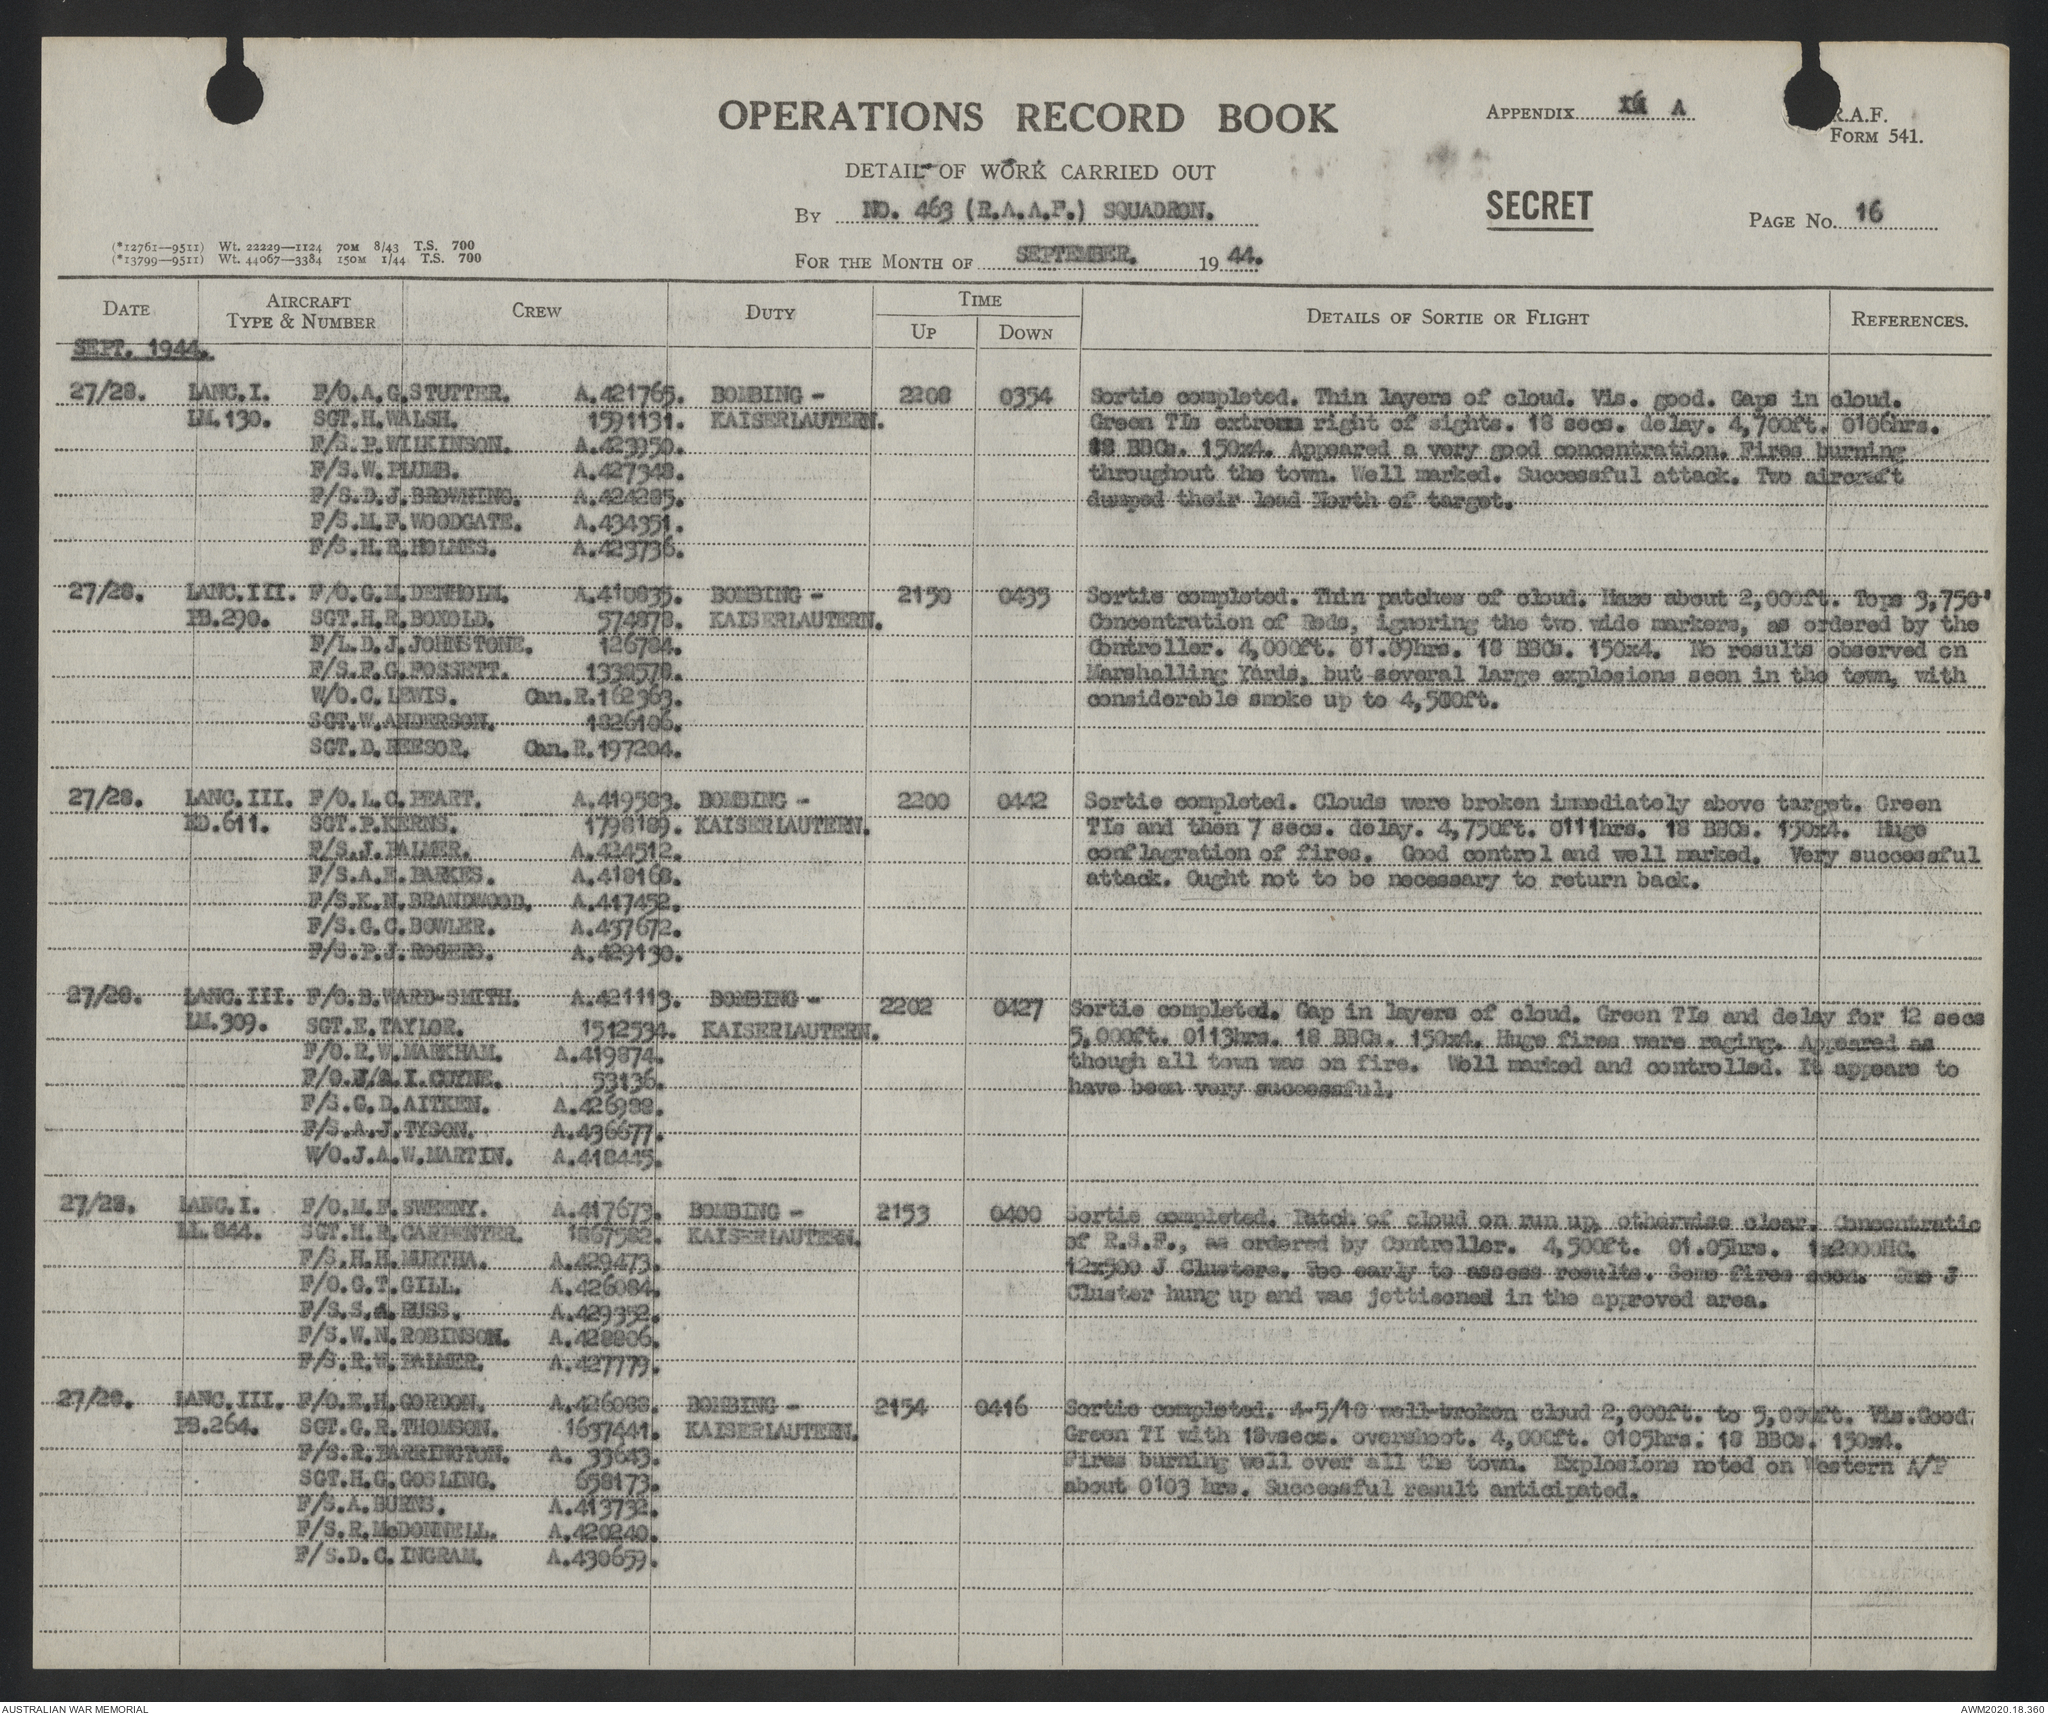 OPERATIONS RECORD BOOK
APPENDIX A
R.A.F.
FORM 541.
DETAIL OF WORK CARRIED OUT
BY NO. 463 (R.A.A.F.) SQUADRON.
SECRET
PAGE NO. 16
(*12761—9511) Wt. 22229—1124 70M 8/43 T.S. 700
(*13799—9511) Wt. 44067—3384 150M 1/44 T.S. 700
FOR THE MONTH OF SEPTEMBER. 1944.
DATE AIRCRAFT TYPE & NUMBER CREW DUTY TIME UP DOWN DETAILS OF SORTIE OR FLIGHT REFERENCES.
SEPT. 1944.
27/28. LANC.I. F/O.A.G.STUTTER. A.421765. BOMBING - 2208 0354 Sortie completed. Thin layers of cloud. Vis. good. Gaps in cloud.
LM.130. SGT.H.WALSH. 1591131. KAISERLAUTERN. Green TIs extreme right of sights. 18 secs. delay. 4,700ft. 0106hrs.
F/S.P.WILKINSON. A.423950. 18 BBCs. 150x4. Appeared a very good concentration. Fires burning
F/S.W.PLUMB. A.427348. throughout the town. Well marked. Successful attack. Two aircraft
F/S.D.J.BROWNING. A.424285. dumped their load North of target.
F/S.M.F.WOODGATE. A.434351.
F/S.H.R.HOLMES. A.423736.
27/28. LANC.III. F/O.G.M.DENHOLM. A.410835. BOMBING - 2150 0435 Sortie completed. Thin patches of cloud. Haze about 2,000ft. Tops 3,750'
PB.290. SGT.H.R.BOXOLD. 574878. KAISERLAUTERN. Concentration of Reds, ignoring the two wide markers, as ordered by the
F/L.D.J.JOHNSTONE. 126784. Controller. 4,000ft. 01.09hrs. 18 BBCs. 150x4. No results observed on
F/S.F.G.FOSSETT. 1338578. Marshalling Yards, but several large explosions seen in the town, with
W/O.C.LEWIS. Can.R.162363. considerable smoke up to 4,500ft.
SGT.W.ANDERSON. 1826106.
SGT.D.BEESOR. Can.R.197204.
27/28. LANC.III. F/O.L.C.PEART. A.419583. BOMBING - 2200 0442 Sortie completed. Clouds were broken immediately above target. Green
ED.611. SGT.P.KERNS. 1798189. KAISERLAUTERN. TIs and then 7 secs. delay. 4,750ft. 0111hrs. 18 BBCs. 150x4. Huge
F/S.J.PALMER. A.424512. conflagration of fires. Good control and well marked. Very successful
F/S.A.E.PARKES. A.418168. attack. Ought not to be necessary to return back.
F/S.K.N.BRANDWOOD. A.417452.
F/S.G.C.BOWLER. A.437672.
F/S.P.J.ROGERS. A.429130.
27/28. LANC.III. F/O.B.WARD-SMITH. A.421113. BOMBING - 2202 0427 Sortie completed. Gap in layers of cloud. Green TIs and delay for 12 secs
LM.309. SGT.E.TAYLOR. 1512534. KAISERLAUTERN. 5,000ft. 0113hrs. 18 BBCs. 150x4. Huge fires were raging. Appeared as
F/O.R.W.MARKHAM. A.419874. though all town was on fire. Well marked and controlled. It appears to
F/O. I.COYNE. 53136. have been very successful.
F/S.G.D.AITKEN. A.426988.
F/S.A.J.TYSON. A.436677.
W/O.J.A.W.MARTIN. A.418445.
27/28. LANC.I. F/O.M.F.SWEENY. A.417673. BOMBING - 2153 0400 Sortie completed. Patch of cloud on run up, otherwise clear. Concentratio
LL.844. SGT.H.R.CARPENTER. 1867582. KAISERLAUTERN. of R.S.F., as ordered by Controller. 4,500ft. 01.05hrs. 1x2000HC.
F/S.H.H.MURTHA. A.429473. 12x500 J Clusters. Too early to assess results. Some fires seen. One J
F/O.G.T.GILL. A.426084. Cluster hung up and was jettisoned in the approved area.
F/S.S.A.RUSS. A.429352.
F/S.W.N.ROBINSON. A.428806.
F/S.R.W.PALMER. A.427779.
27/28. LANC.III. F/O.E.H.GORDON. A.426088. BOMBING - 2154 0416 Sortie completed. 4-5/10 well-broken cloud 2,000ft. to 5,000ft. Vis.Good.
PB.264. SGT.G.R.THOMSON. 1637441. KAISERLAUTERN. Green TI with 18vsecs. overshoot. 4,000ft. 0105hrs. 18 BBCs. 150x4.
F/S.R.BARRINGTON. A. 33643. Fires burning well over all the town. Explosions noted on Western A/P
SGT.H.G.GOSLING. 658173. about 0103 hrs. Successful result anticipated.
F/S.A.BURNS. A.413732.
F/S.R.McDONNELL. A.420240.
F/S.D.C.INGRAM. A.430659.
AUSTRALIAN WAR MEMORIAL
AWM2020.18.360